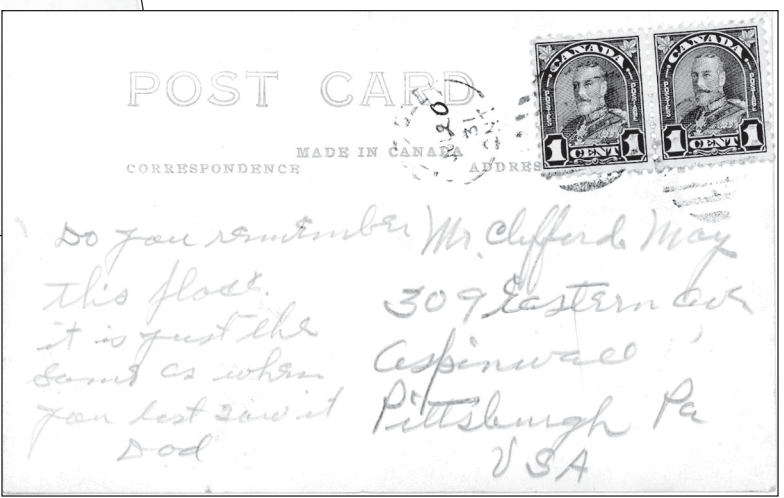 POST CARD
MADE IN CANADA
CORRESPONDENCE
ADDRESS
20
31
ONT.
CANADA
POSTES POSTES
1 CENT 1
CANADA
POSTES POSTES
1 CENT 1
Do you remember
this place.
it is just the
same as when
you last saw it
Dad
Mr. Clifford May
309 Eastern Ave
Aspinwall
Pittsburgh Pa
USA